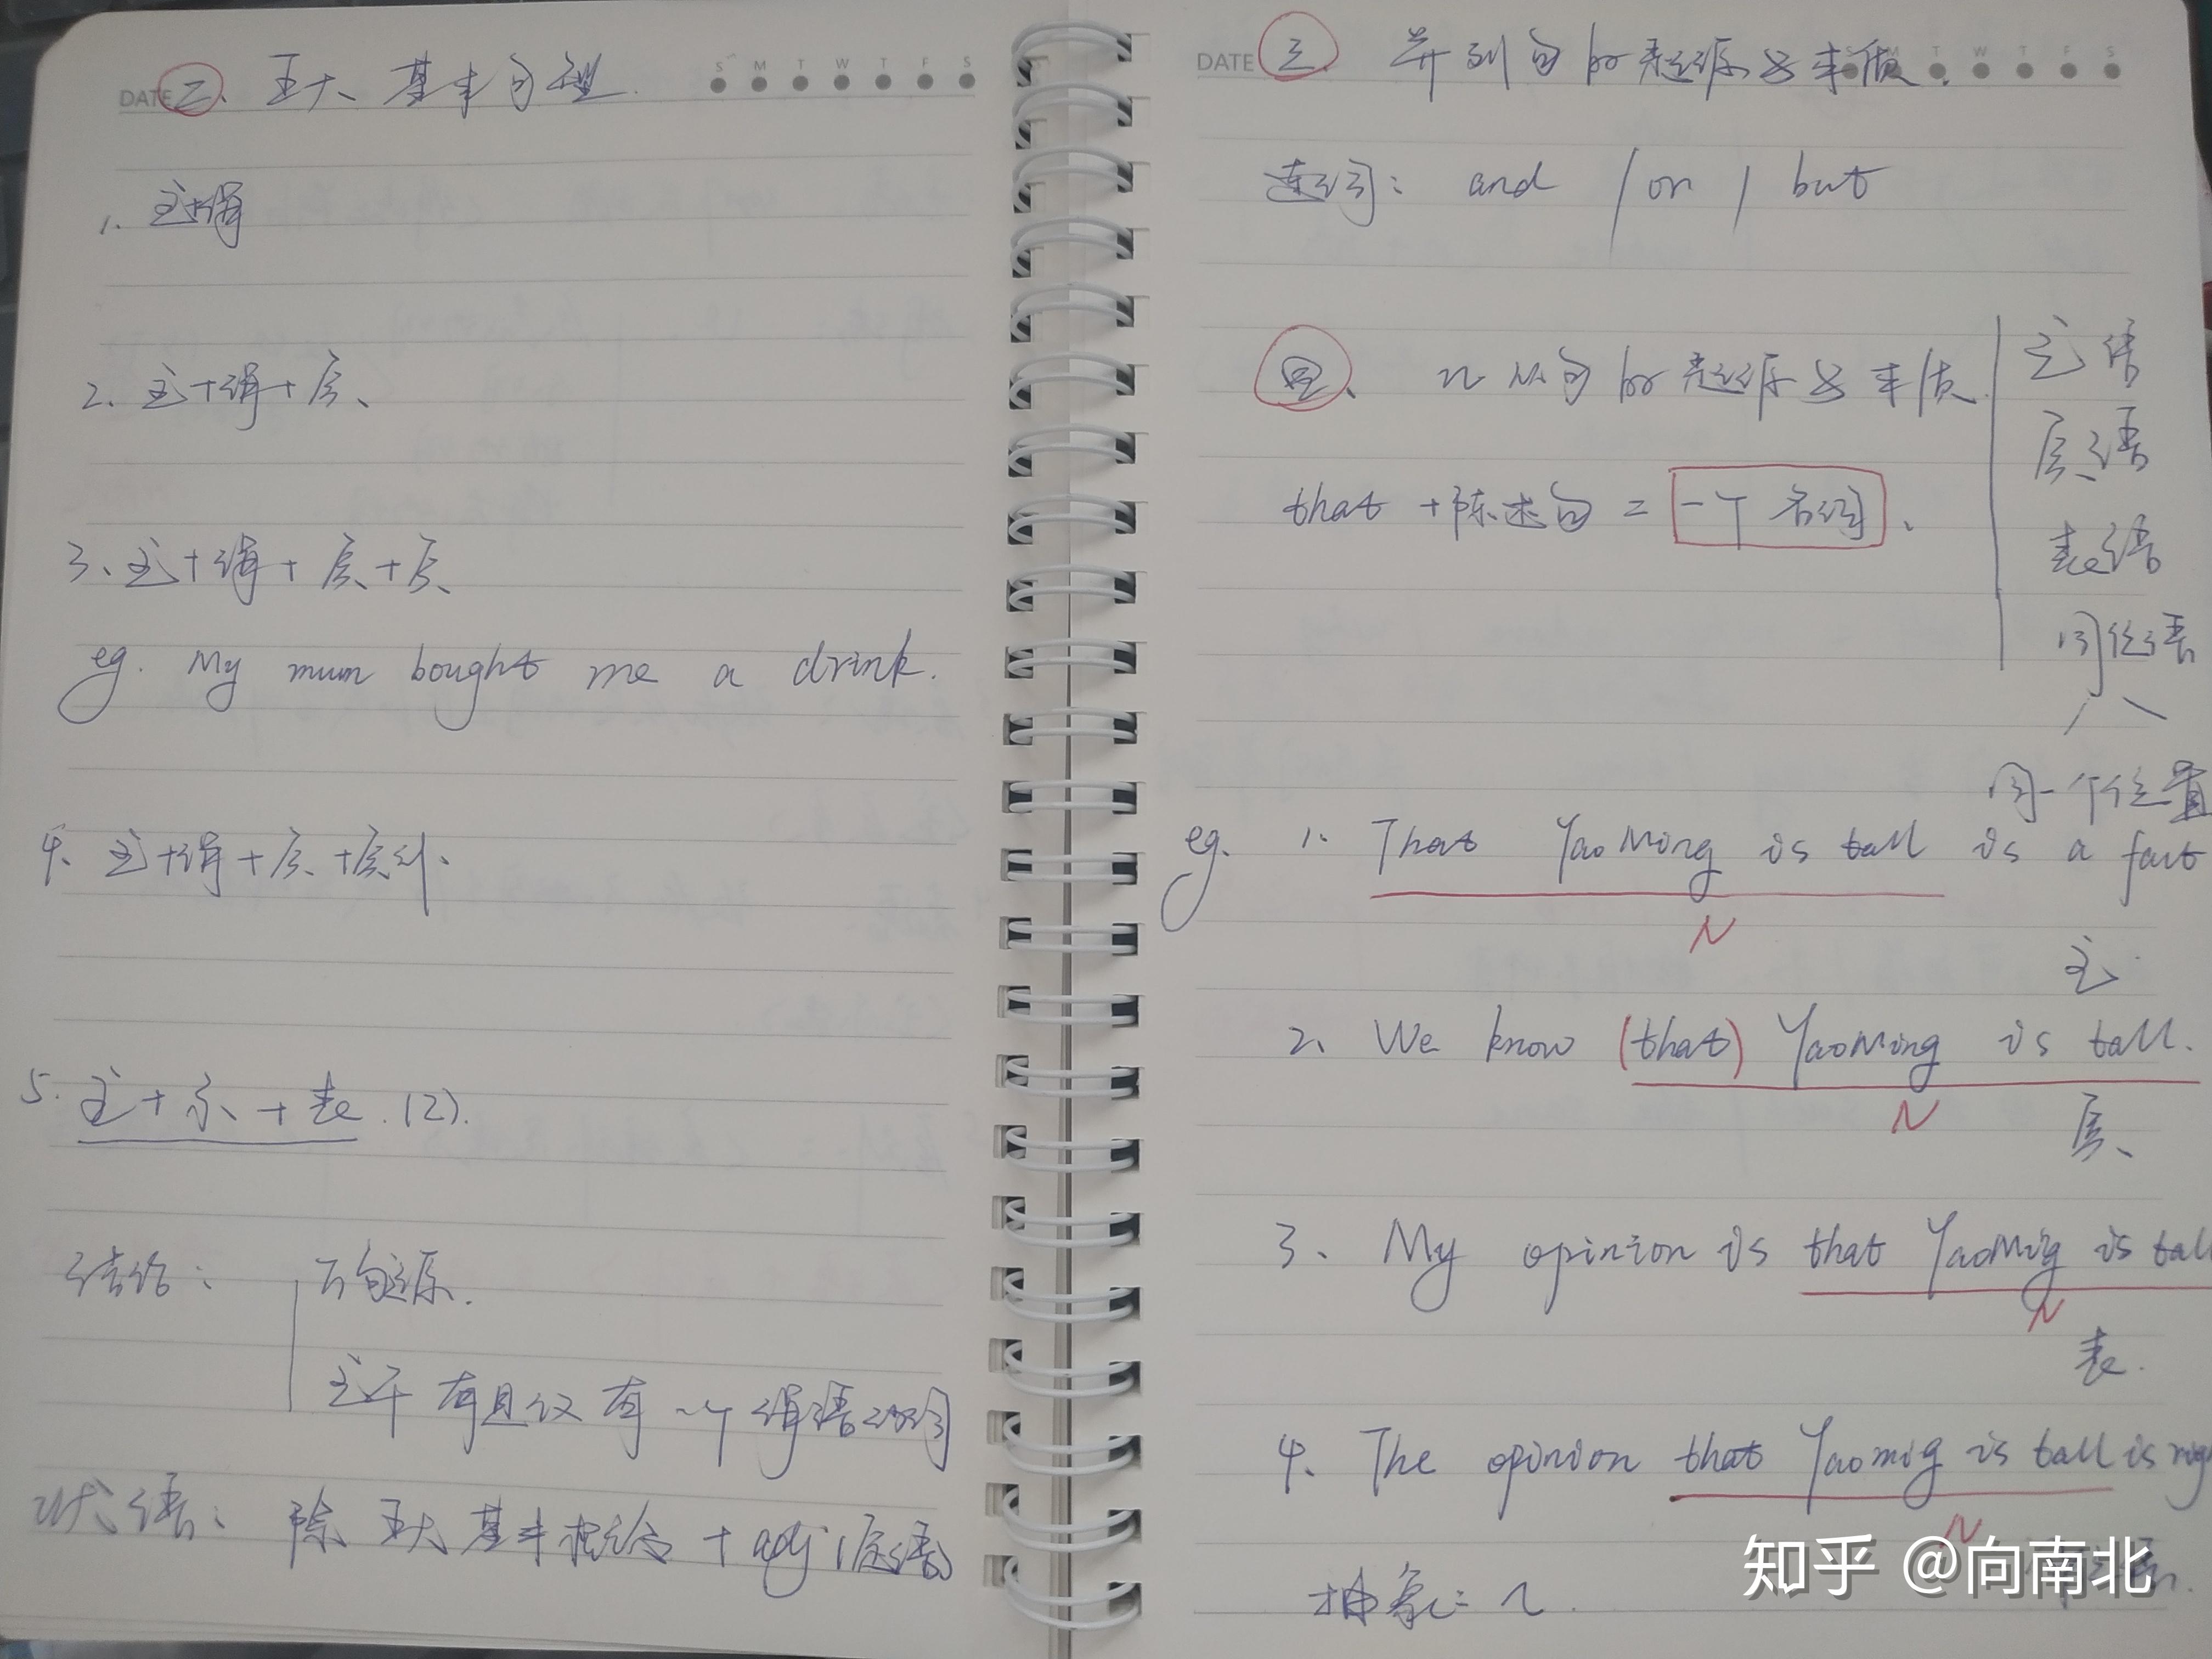 DATE 二、五大基本句型. S M T W T F S
1. 主+谓
2. 主+谓+宾、
3、主+谓+宾+宾
eg. My mum bought me a drink.
4、主+谓+宾+宾补、
5. 主+系+表.(2).
结论:
万句之源.
主干有且仅有一个谓语动词
状语: 除五大基本 + adj(定语)
DATE 三、并列句的起源与本质. S M T W T F S
连词: and / or / but
四、n从句的起源与本质
主语
宾语
表语
同位语
that +陈述句 = 一个名词、
同一个位置
eg. 1. That YaoMing is tall is a fact
N
主
2、We know (that) YaoMing is tall.
N
宾、
3、My opinion is that YaoMig is tall
N
表.
4、The opinion that Yaomig is tall is
N
抽象: n.
知乎 @向南北